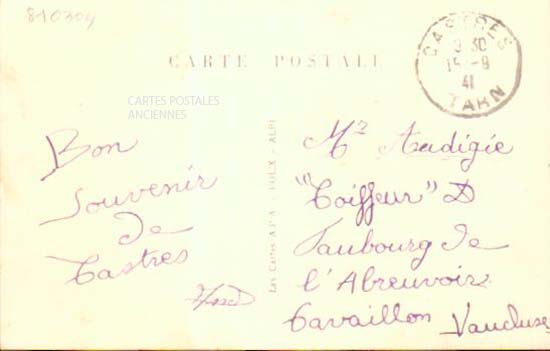 810304
CARTE POSTALE
CASTRES
9 30
15-9
41
TARN
CARTES POSTALES
ANCIENNES
Bon
Souvenir
de
Castres
Les Cartes APA - POUX - ALBI
Mr Audigié
"Coiffeur" D
Faubourg de
l'Abreuvoir
Cavaillon Vaucluse